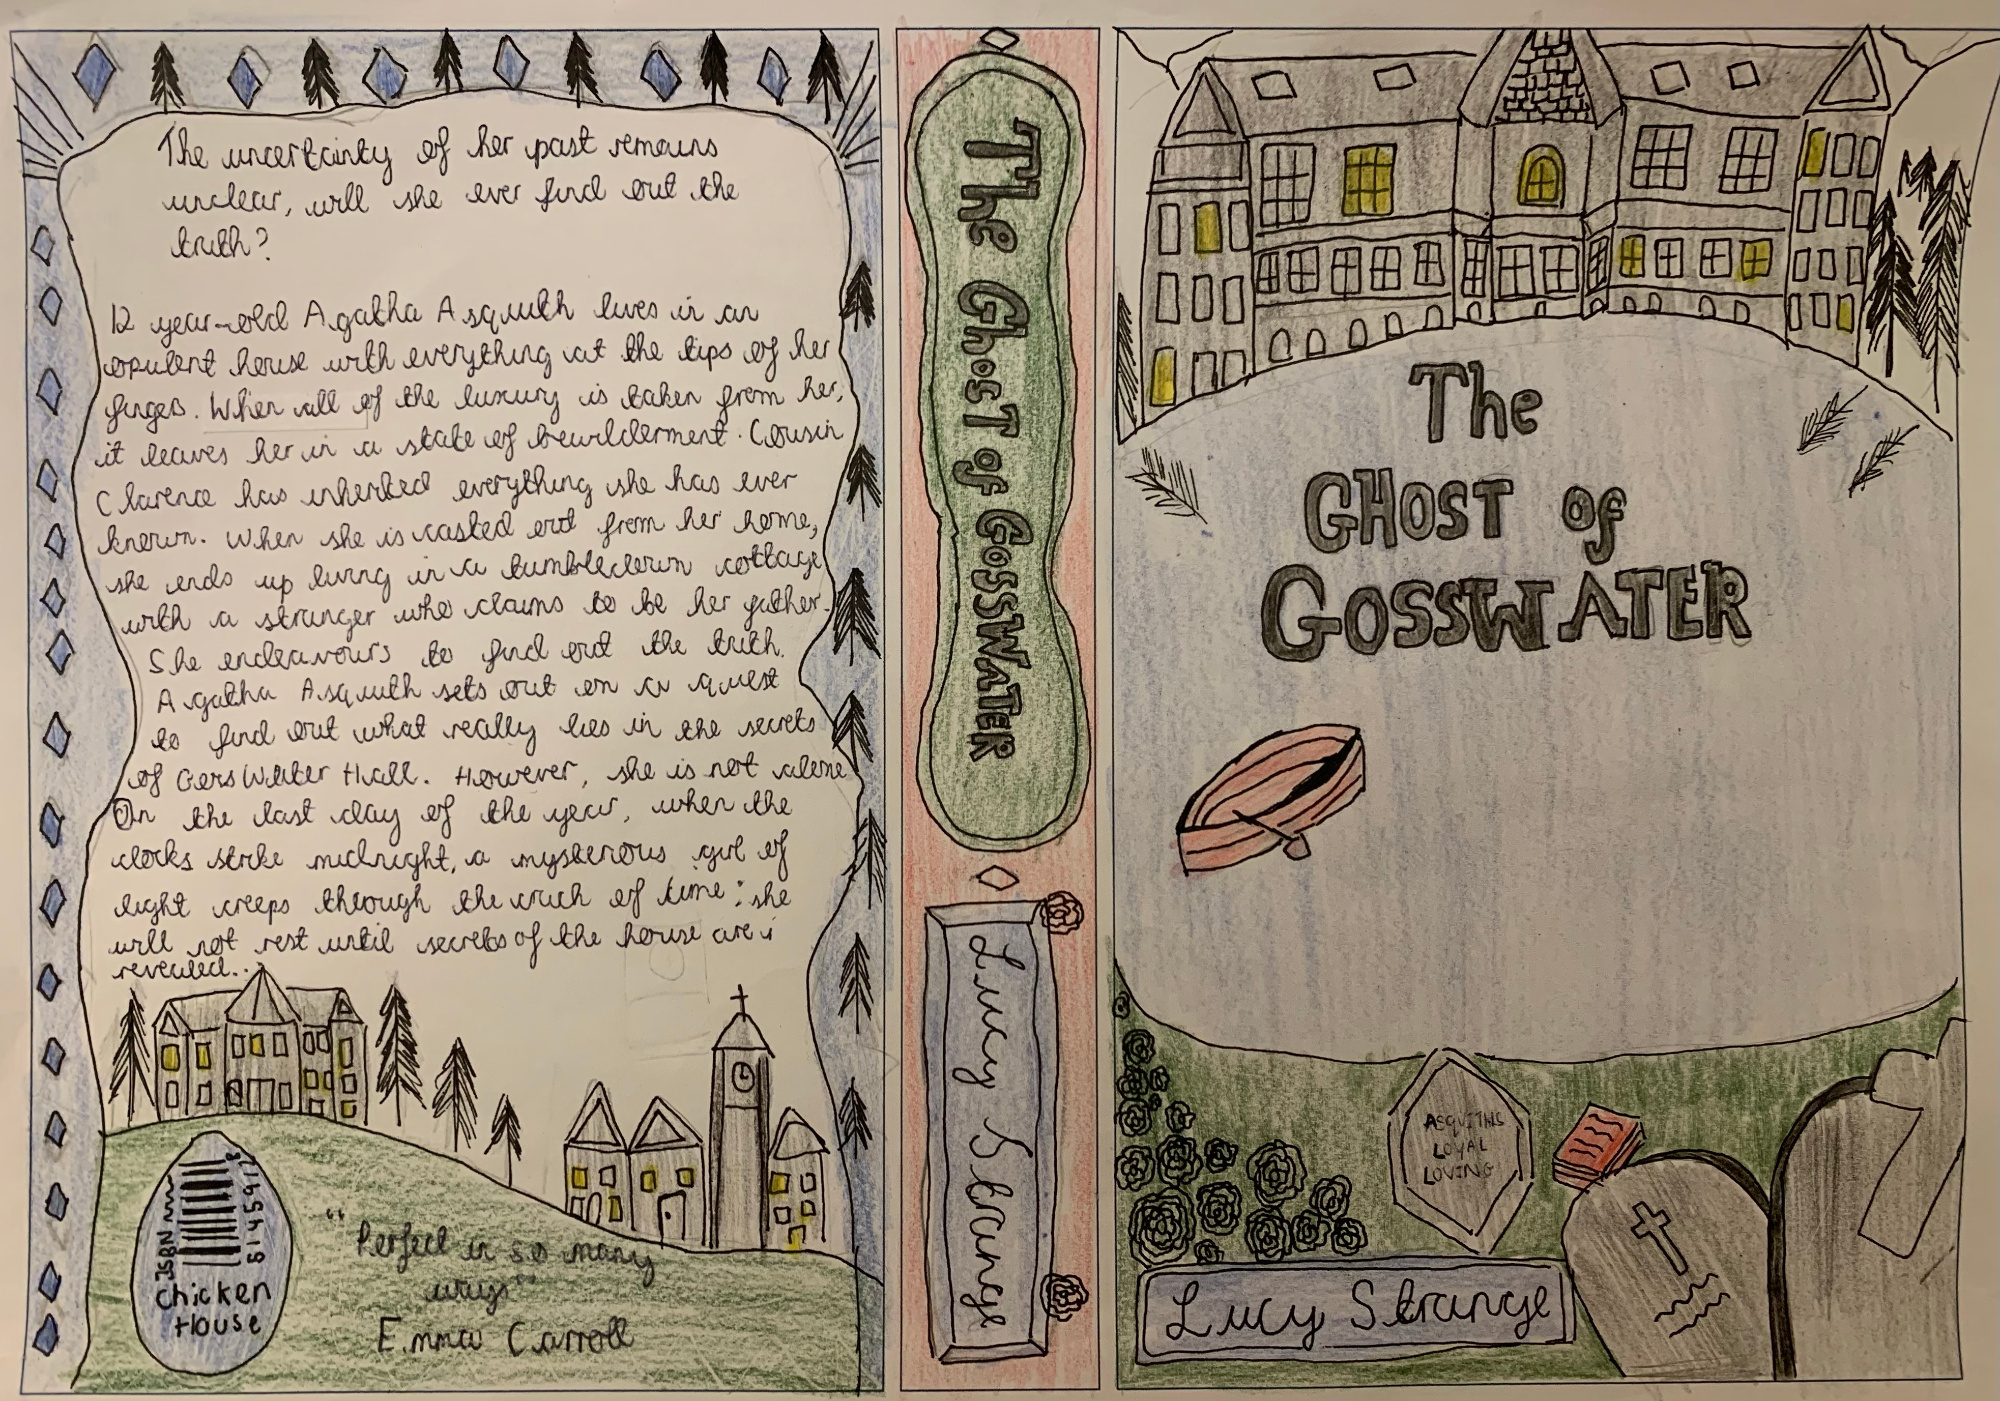 The uncertainty of her past remains
unclear, will she ever find out the
truth?
12 year-old Agatha Asquith lives in an
opulent house with everything at the tips of her
fingers. When all of the luxury is taken from her,
it leaves her in a state of bewilderment. Cousin
Clarence has inherited everything she has ever
known. When she is casted out from her home,
she ends up living in a tumbledown cottage
with a stranger who claims to be her father.
She endeavours to find out the truth.
Agatha Asquith sets out on a quest
to find out what really lies in the secrets
of GossWater Hall. However, she is not alone
On the last day of the year, when the
clocks strike midnight, a mysterious girl of
light creeps through the crack of time; she
will not rest until secrets of the house are
revealed...
ISBN
8145917
Chicken
House
"Perfect in so many
ways"
Emma Carroll
The Ghost of GossWateR
Lucy Strange
The
GHOST of
GOSSWATER
ASQUITHS
LOYAL
LOVING
Lucy Strange